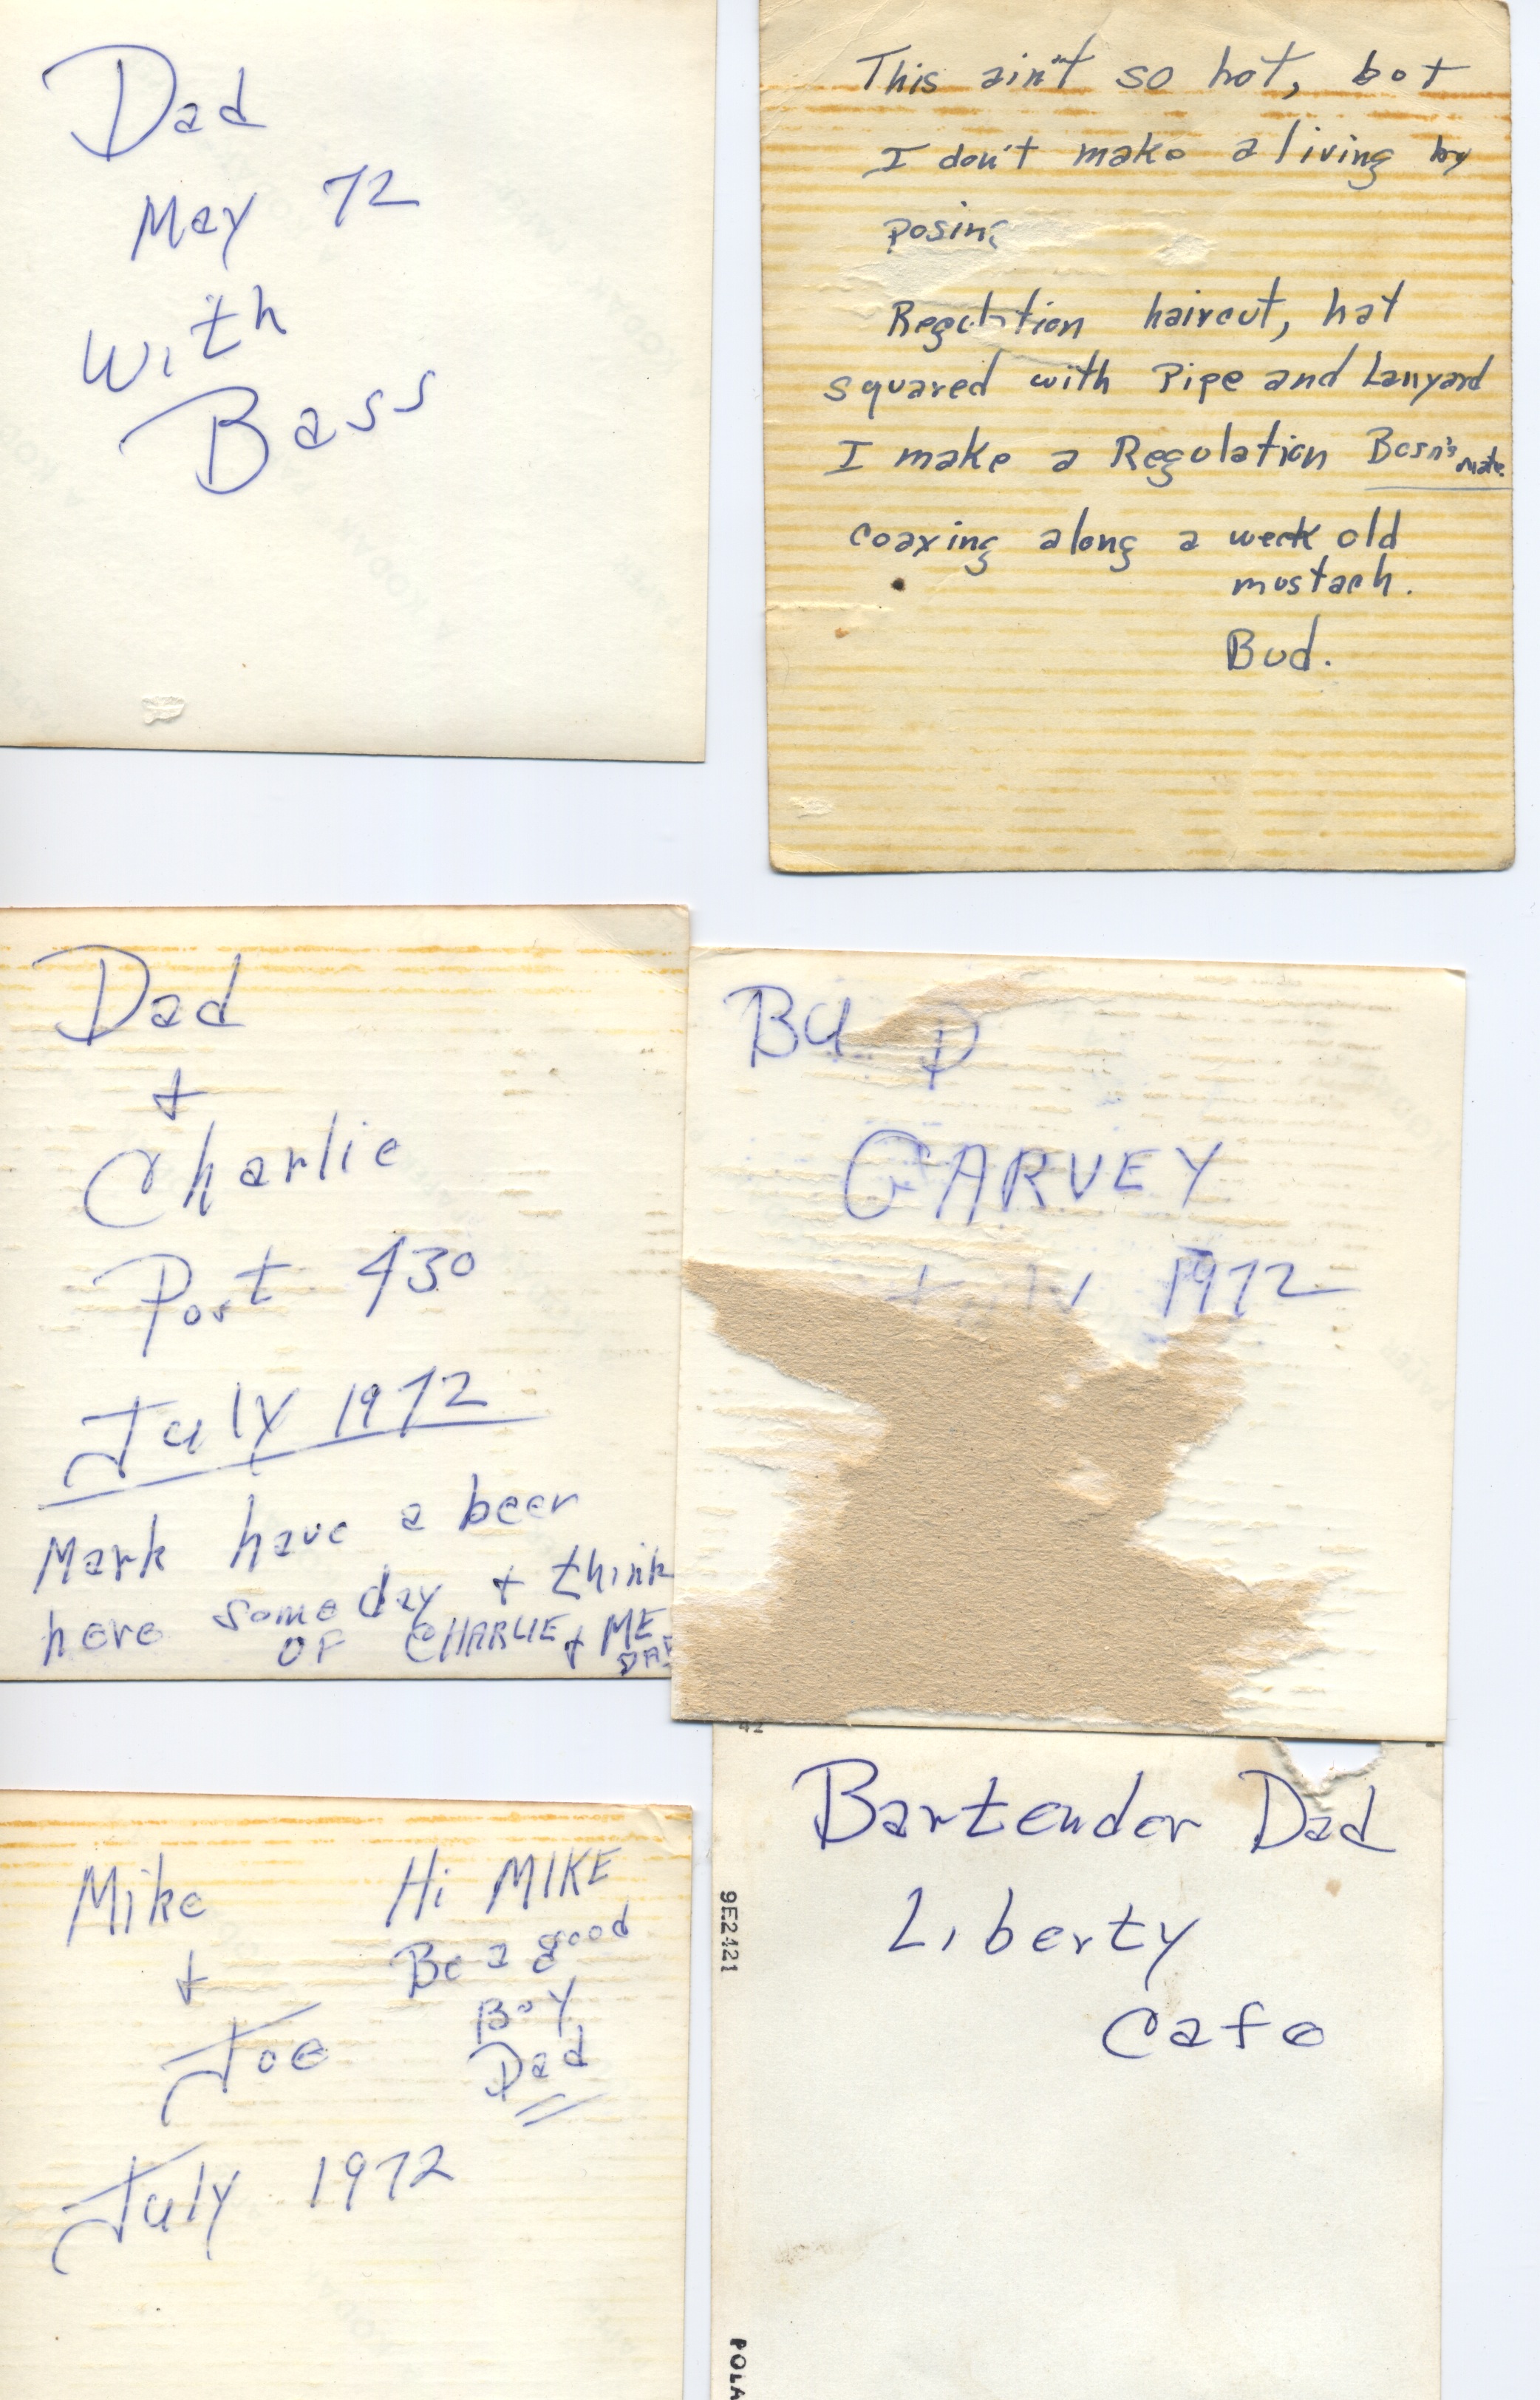 Dad
May 72
With
Bass
This ain't so hot, but
I don't make a living by
posing
Regulation haircut, hat
squared with Pipe and Lanyard
I make a Regulation Bosn's mate
coaxing along a week old
mustach.
Bud.
Dad
+
Charlie
Post 430
July 1972
Mark have a beer
here some day + think
OF CHARLIE + ME
DAD
BUD
GARVEY
July 1972
Mike
+
Joe
July 1972
Hi MIKE
Be a good
Boy
Dad
42
Bartender Dad
Liberty
Cafe
9E2421
POLA